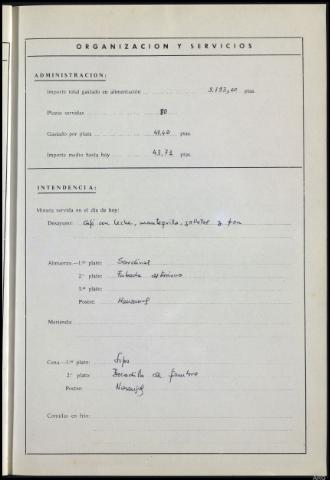 ORGANIZACION Y SERVICIOS
ADMINISTRACION:
Importe total gastado en alimentación 3.793,00 ptas.
Plazas servidas 80
Gastado por plaza 47,40 ptas.
Importe medio hasta hoy 43,71 ptas.
INTENDENCIA:
Minuta servida en el día de hoy:
Desayuno: Café con leche, mantequilla, galletas y pan
Almuerzo.—1.er plato: Sardinas
2.º plato: Fabada asturiana
3.er plato:
Postre: Manzanas
Merienda:
Cena.—1.er plato: Sopa
2.º plato: de
Postre: Naranjas
Comidas en frío: